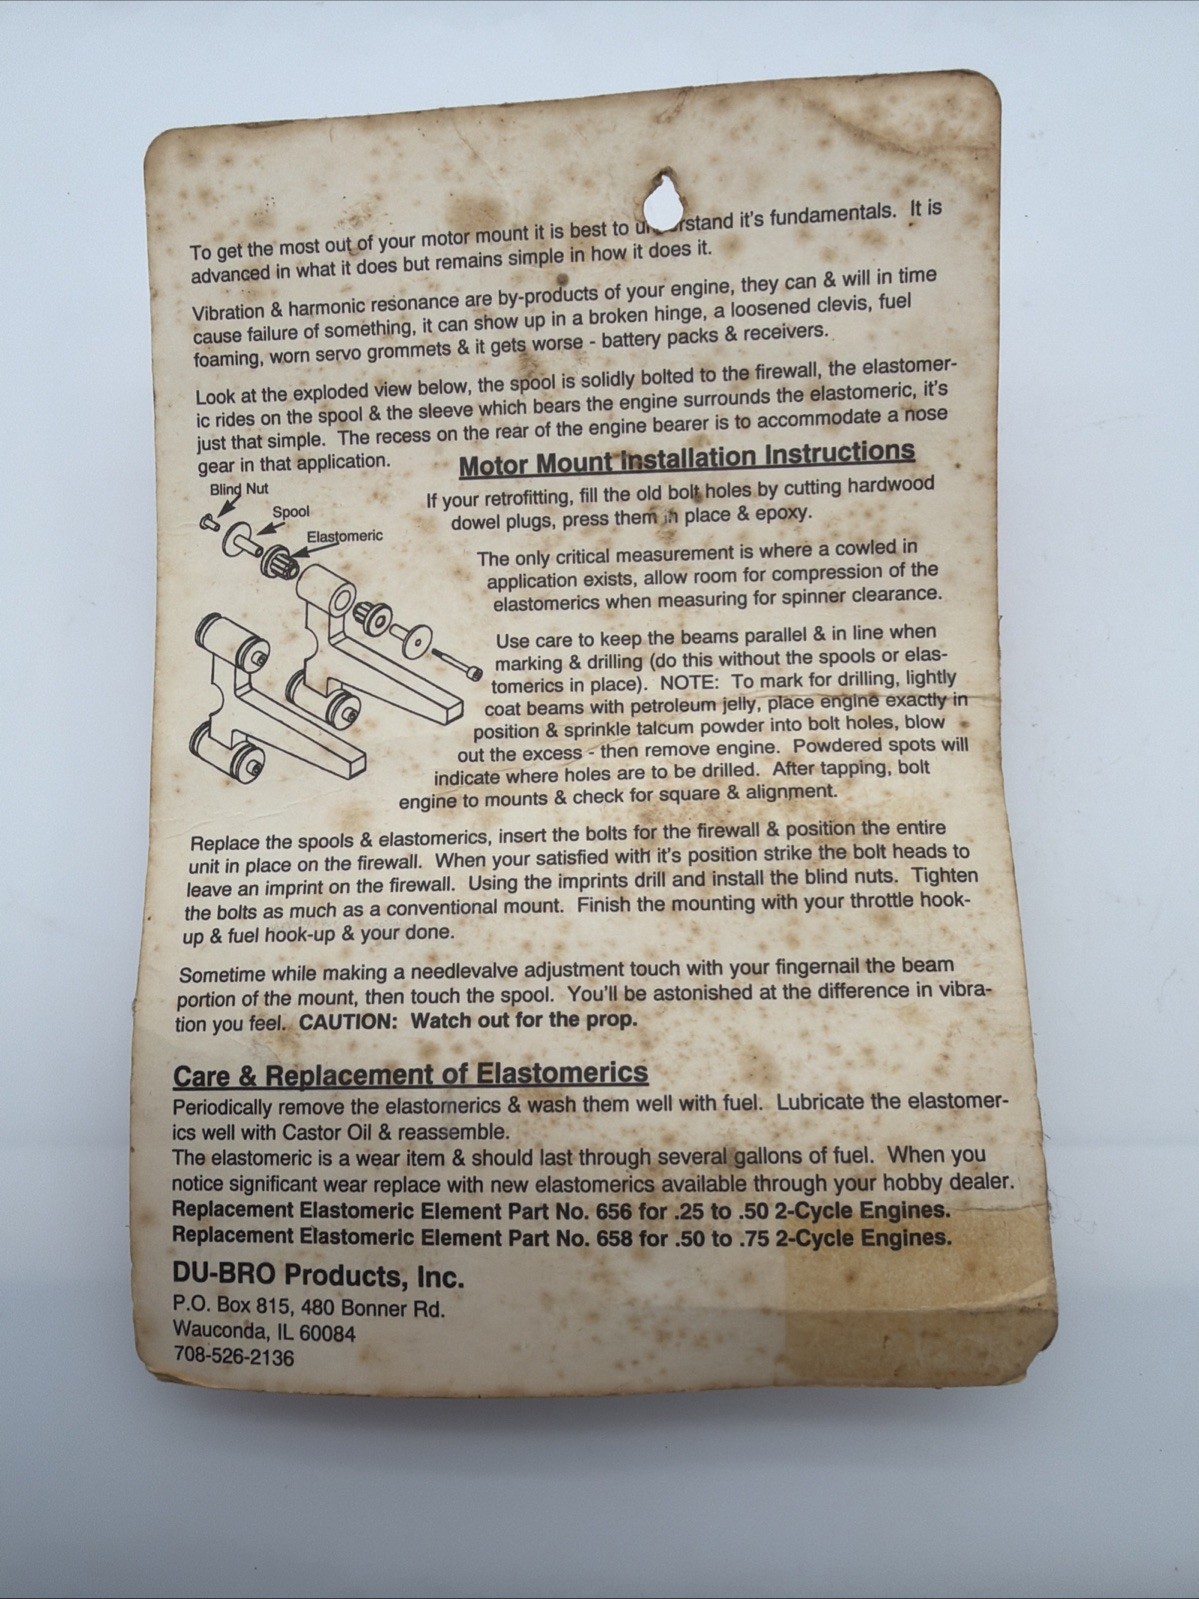 To get the most out of your motor mount it is best to understand it's fundamentals. It is
advanced in what it does but remains simple in how it does it.
Vibration & harmonic resonance are by-products of your engine, they can & will in time
cause failure of something, it can show up in a broken hinge, a loosened clevis, fuel
foaming, worn servo grommets & it gets worse - battery packs & receivers.
Look at the exploded view below, the spool is solidly bolted to the firewall, the elastomer-
ic rides on the spool & the sleeve which bears the engine surrounds the elastomeric, it's
just that simple. The recess on the rear of the engine bearer is to accommodate a nose
gear in that application.
Blind Nut
Spool
Elastomeric
Motor Mount Installation Instructions
If your retrofitting, fill the old bolt holes by cutting hardwood
dowel plugs, press them in place & epoxy.
The only critical measurement is where a cowled in
application exists, allow room for compression of the
elastomerics when measuring for spinner clearance.
Use care to keep the beams parallel & in line when
marking & drilling (do this without the spools or elas-
tomerics in place). NOTE: To mark for drilling, lightly
coat beams with petroleum jelly, place engine exactly in
position & sprinkle talcum powder into bolt holes, blow
out the excess - then remove engine. Powdered spots will
indicate where holes are to be drilled. After tapping, bolt
engine to mounts & check for square & alignment.
Replace the spools & elastomerics, insert the bolts for the firewall & position the entire
unit in place on the firewall. When your satisfied with it's position strike the bolt heads to
leave an imprint on the firewall. Using the imprints drill and install the blind nuts. Tighten
the bolts as much as a conventional mount. Finish the mounting with your throttle hook-
up & fuel hook-up & your done.
Sometime while making a needlevalve adjustment touch with your fingernail the beam
portion of the mount, then touch the spool. You'll be astonished at the difference in vibra-
tion you feel. CAUTION: Watch out for the prop.
Care & Replacement of Elastomerics
Periodically remove the elastomerics & wash them well with fuel. Lubricate the elastomer-
ics well with Castor Oil & reassemble.
The elastomeric is a wear item & should last through several gallons of fuel. When you
notice significant wear replace with new elastomerics available through your hobby dealer.
Replacement Elastomeric Element Part No. 656 for .25 to .50 2-Cycle Engines.
Replacement Elastomeric Element Part No. 658 for .50 to .75 2-Cycle Engines.
DU-BRO Products, Inc.
P.O. Box 815, 480 Bonner Rd.
Wauconda, IL 60084
708-526-2136